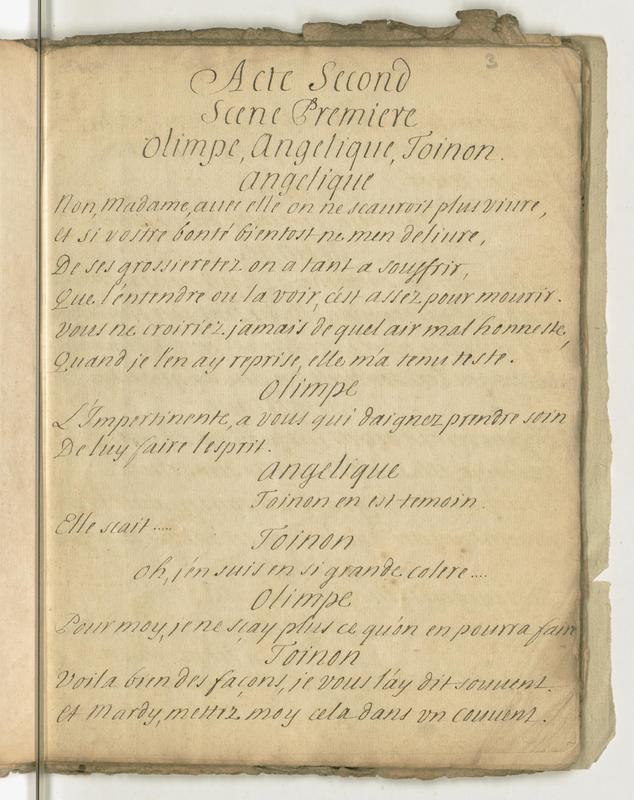 3
Acte Second
Scene Premiere
Olimpe, Angelique, Toinon.
Angelique
Non, Madame, avec elle on ne scauroit plus vivre,
Et si vostre bonté bientost ne men delivre,
De ses grossieretez on a tant a souffrir,
Que l'entendre ou la voir, c'est assez pour mourir.
Vous ne croiriez jamais de quel air mal honneste,
Quand je l'en ay reprise, elle m'a tenu teste.
Olimpe
L'Impertinente, a vous qui daignez prendre soin
De luy faire l'esprit.
Angelique
Toinon en est temoin.
Elle scait .....
Toinon
Oh, j'en suis en si grande colere ....
Olimpe
Pour moy, je ne sçay plus ce qu'on en pourra faire
Toinon
Voila bien des façons, je vous l'ay dit souvent.
Et Mardy, mettez moy cela dans un couvent.